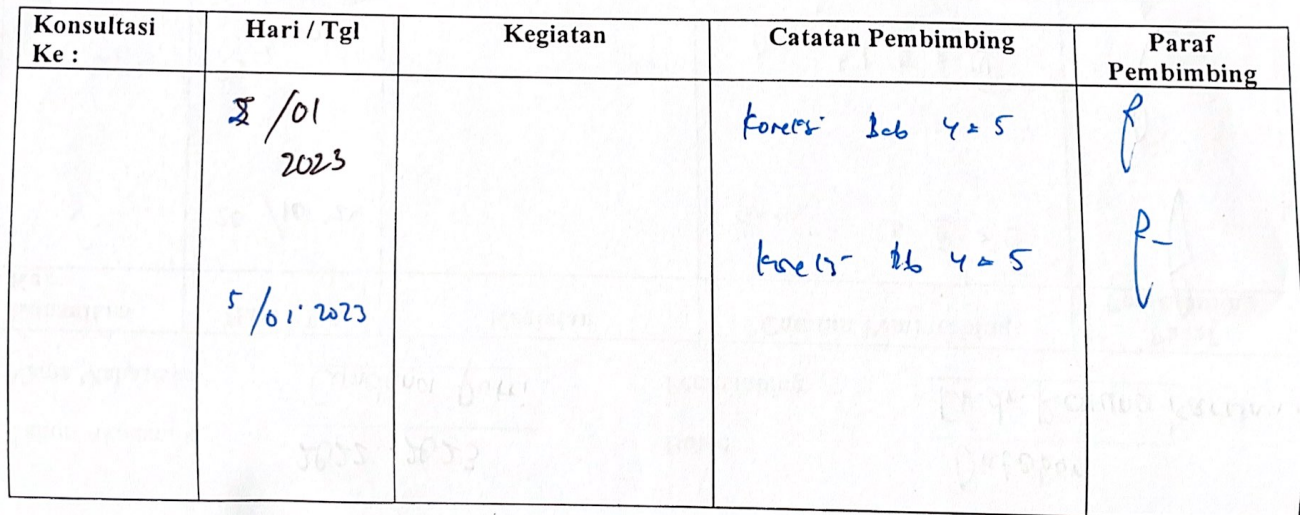 Konsultasi Ke :
Hari / Tgl
Kegiatan
Catatan Pembimbing
Paraf Pembimbing
/01
2023
Koreksi Bab 4 & 5
Koreksi Bab 4 & 5
5/01 2023